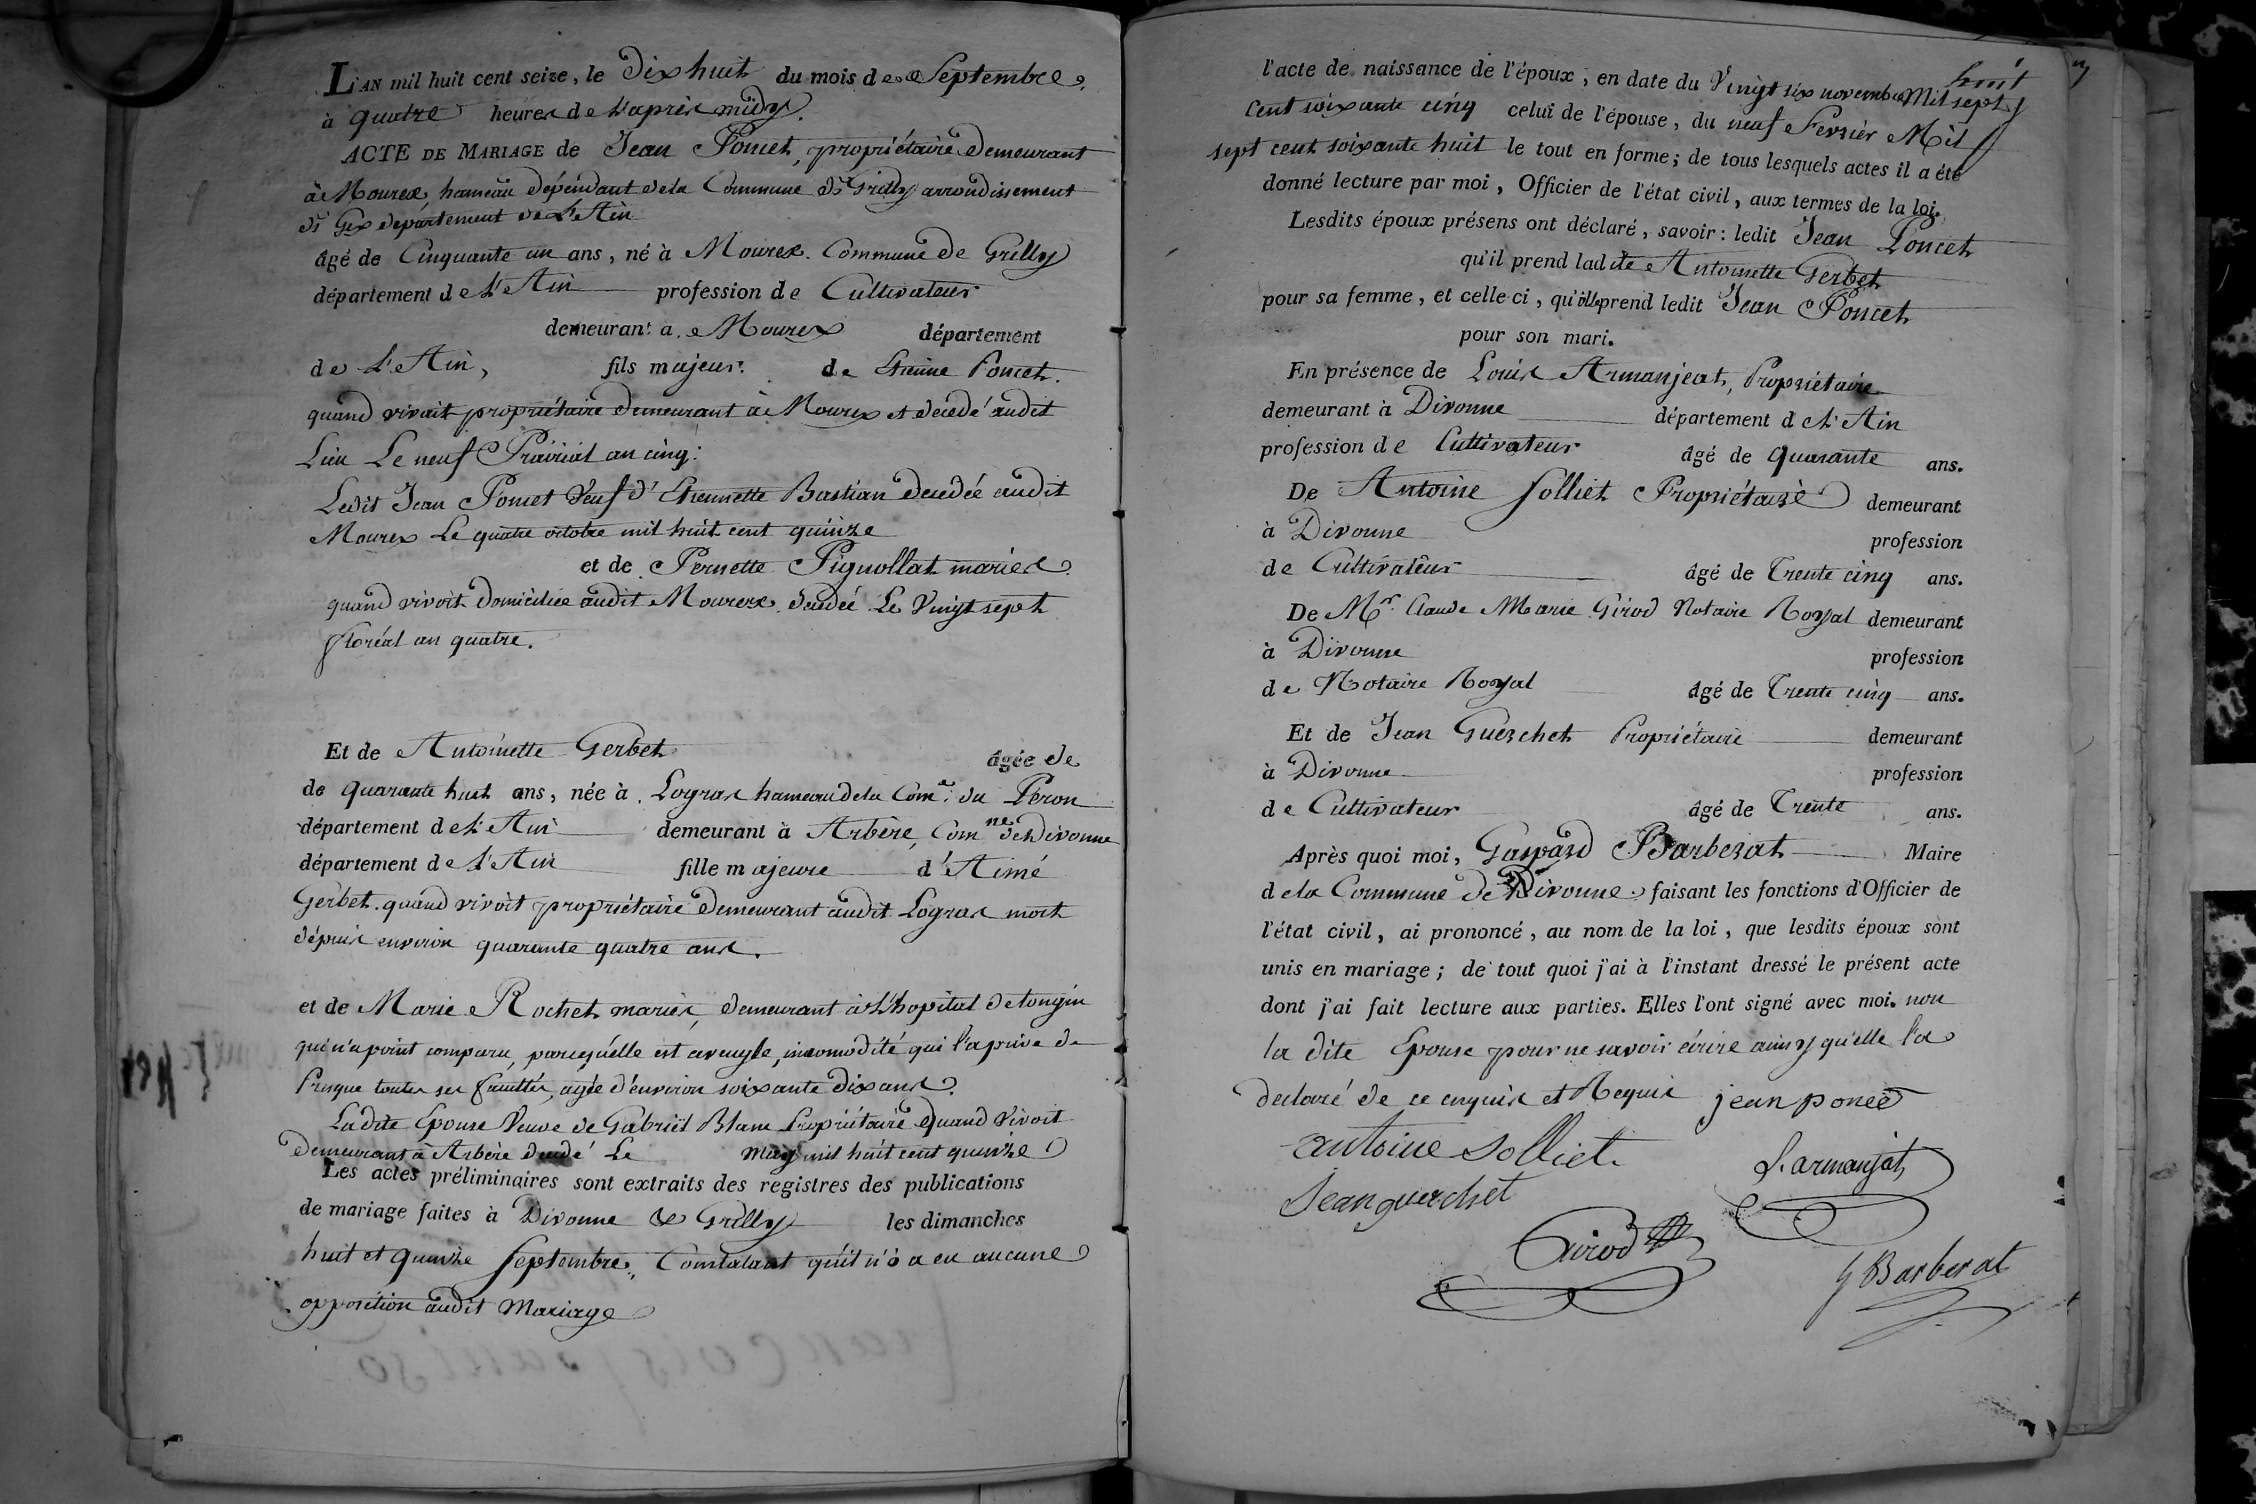 L'AN mil huit cent seize, le Dix huit du mois de Septembre,
à quatre heures de L'après midy.
ACTE DE MARIAGE de Jean Poncet, propriétaire Demeurant
à Mourex, hameau dépendant de la Commune de Grilly arrondissement
de Gex département de L'Ain
âgé de Cinquante un ans, né à Mourex. Commune de Grilly
département de L'Ain profession de Cultivateur
demeurant à Mourex département
de L'Ain, fils majeur de Etienne Poncet.
quand vivait propriétaire demeurant à Mourex et décédé audit
Lieu Le neuf Prairial an cinq:
Ledit Jean Poncet Veuf d'Etiennette Bastian décédée audit
Mourex Le quatre octobre mil huit cent quinze
et de Pernette Pignollat mariés
quand vivoit Domiciliée audit Mourex, décédée Le Vingt sept
floréal an quatre.
Et de Antoinette Gerbet âgée de
de quarante huit ans, née à Logras hameau de la Com.e du Péron
département de L'Ain demeurant à Arbère, Com.ne de Divonne
département de L'Ain fille majeure d'Aimé
Gerbet. quand vivoit propriétaire demeurant audit Logras mort
depuis environ quarante quatre ans.
et de Marie Rochet mariés, demeurant à L'hopital de tougin
qui n'a point comparu, parcequ'elle est aveugle, incomodité qui l'a prive de
Presque toutes ses facultés, agée d'environ soixante dix ans.
Ladite Epouse Veuve de Gabriel Blanc Propriétaire Quand Vivoit
Demeurant à Arbère décédé Le may mil huit cent quinze
Les actes préliminaires sont extraits des registres des publications
de mariage faites à Divonne & Grilly les dimanches
huit et quinze Septembre, Constatant qu'il n'y a eu aucune
opposition audit Mariage
l'acte de naissance de l'époux, en date du Vingt six novembre Mil sept
huit
Cent soixante cinq celui de l'épouse, du neuf Fevrier Mil
sept cent soixante huit le tout en forme; de tous lesquels actes il a été
donné lecture par moi, Officier de l'état civil, aux termes de la loi.
Lesdits époux présens ont déclaré, savoir: ledit Jean Poncet
qu'il prend ladite Antoinette Gerbet
pour sa femme, et celle ci, qu'elle prend ledit Jean Poncet
pour son mari.
En présence de Louis Armanjeat, Propriétaire
demeurant à Divonne département d L'Ain
profession de Cultivateur âgé de quarante ans.
De Antoine Solliet Propriétaire demeurant
à Divonne profession
de Cultivateur âgé de Trente cinq ans.
De Mr. Claude Marie Girod Notaire Royal demeurant
à Divonne profession
de Notaire Royal âgé de Trente cinq ans.
Et de Jean Guerchet Propriétaire demeurant
à Divonne profession
de Cultivateur âgé de Trente ans.
Après quoi moi, Gaspard Barberat Maire
de la Commune de Divonne faisant les fonctions d'Officier de
l'état civil, ai prononcé, au nom de la loi, que lesdits époux sont
unis en mariage; de tout quoi j'ai à l'instant dressé le présent acte
dont j'ai fait lecture aux parties. Elles l'ont signé avec moi. non
la dite Epouse pour ne savoir écrire ainsy qu'elle l'a
déclaré de ce enquise et Requise jean poncet
antoine Solliet L. armanjat
Jean guerchet
Girod
G Barberat